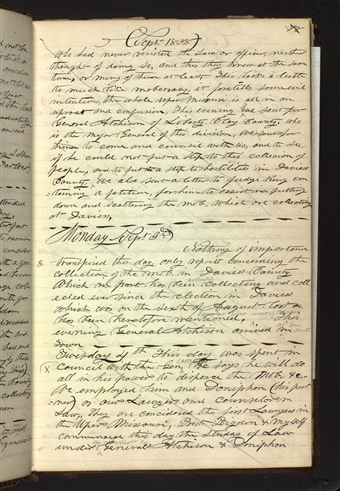 (Sept. 1838)
We had never resisted the Law or officer, neither
thought of doing so, and this they knew at the same
time, or many of them at least. This looks a little
to much like mobocracy, it foretells some evil
intentions, the whole uper Missouri is all in an
uproar and confusion. This evening we sent for
General Atchison of Liberty, Clay County, who
is the Major General of this division, we sent for
him to come and council with us, and to see
if he could not put a stop to this collection of
people, and to put a stop to hostilities in Daviess
County. We also sent a letter to Judge King con-
taining a petition, for him to assist in putting
down and scattering the mob, which are collecting
at Daviess,
Monday Sept. 3rd Nothing of importance
transpired this day, only reports concerning the
collection of the mob in Daviess County
Which in part has been collecting and coll
ected ever since the election in Daviess
which was on the sixth of August last as
has been heretofore mentioned. This
evening General Atchison arrived in
town
Tuesday 4th This day was spent in
Council with the Gen. He says he will do
all in his power to disperse the Mob &c.
We employed him and Doniphon (his part-
ner) as our Lawyers and counselors in
Law, They are concidered the first Lawyers in
the Uper Missouri, Prest Rigdon & myself
commenced this day the Studey of Law
under Generals Atchison & Doniphon